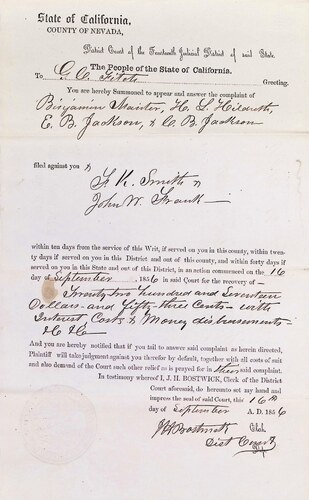 State of California,
COUNTY OF NEVADA,
District Court of the Fourteenth Judicial District of said State.
The People of the State of California.
To G. C. Greeting.
You are hereby Summoned to appear and answer the complaint of
Benjamin H. L. Hildreth,
E. B. Jackson, & C. B. Jackson
filed against you &
F. K. Smith &
John W. Frank
within ten days from the service of this Writ, if served on you in this county, within twenty
days if served on you in this District and out of this county, and within forty days if
served on you in this State and out of this District, in an action commenced on the 16
day of September 1856 in said Court for the recovery of
Twenty two hundred and Seventeen
Dollars and Fifty three Cents with
Interest Costs & Money disbursements
&c &c
And you are hereby notified that if you fail to answer said complaint as herein directed,
Plaintiff will take judgment against you therefor by default, together with all costs of suit
and also demand of the Court such other relief as is prayed for in their said complaint.
In testimony whereof I, J. H. BOSTWICK, Clerk of the District
Court aforesaid, do hereunto set my hand and
impress the seal of said Court, this 16th
day of September A. D. 1856
J H Bostwick Clerk
Dist Court